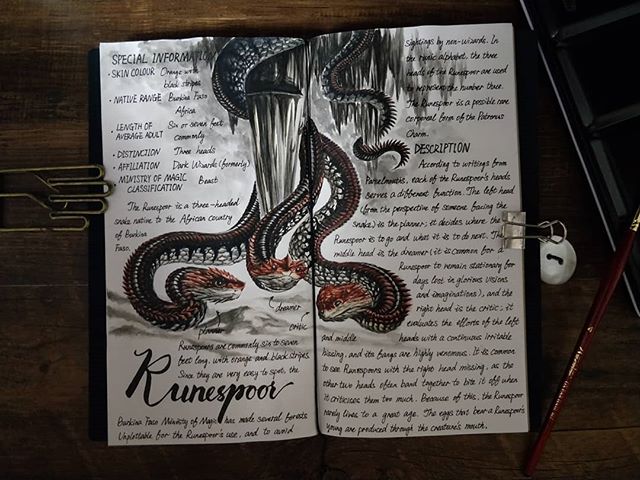 SPECIAL INFORMATION
• SKIN COLOUR Orange with
black stripes
• NATIVE RANGE Burkina Faso
Africa
• LENGTH OF Six or seven feet
AVERAGE ADULT commonly
• DISTINCTION Three heads
• AFFILIATION Dark Wizards (formerly)
MINISTRY OF MAGIC Beast
CLASSIFICATION
The Runespoor is a three-headed
snake native to the African country
of Burkina
Faso.
planner
dreamer
critic
Runespoors are commonly six to seven
feet long, with orange and black stripes.
Since they are very easy to spot, the
Runespoor
Burkina Faso Ministry of Magic has made several forests
Unplottable for the Runespoor's use, and to avoid
sightings by non-wizards. In
the runic alphabet, the three
heads of the Runespoor are used
to represent the number three.
The Runespoor is a possible rare
corporeal form of the Patronus
Charm.
DESCRIPTION
According to writings from
Parselmouths, each of the Runespoor's heads
serves a different function. The left head
(from the perspective of someone facing the
snake) is the planner; it decides where the
Runespoor is to go and what it is to do next. The
middle head is the dreamer (it is common for a
Runespoor to remain stationary for
days lost in glorious visions
and imaginations), and the
right head is the critic; it
evaluates the efforts of the left
and middle heads with a continuous irritable
hissing, and its fangs are highly venomous. It is common
to see Runespoors with the right head missing, as the
other two heads often band together to bite it off when
it criticises them too much. Because of this, the Runespoor
rarely lives to a great age. The eggs that bear a Runespoor's
young are produced through the creature's mouth.